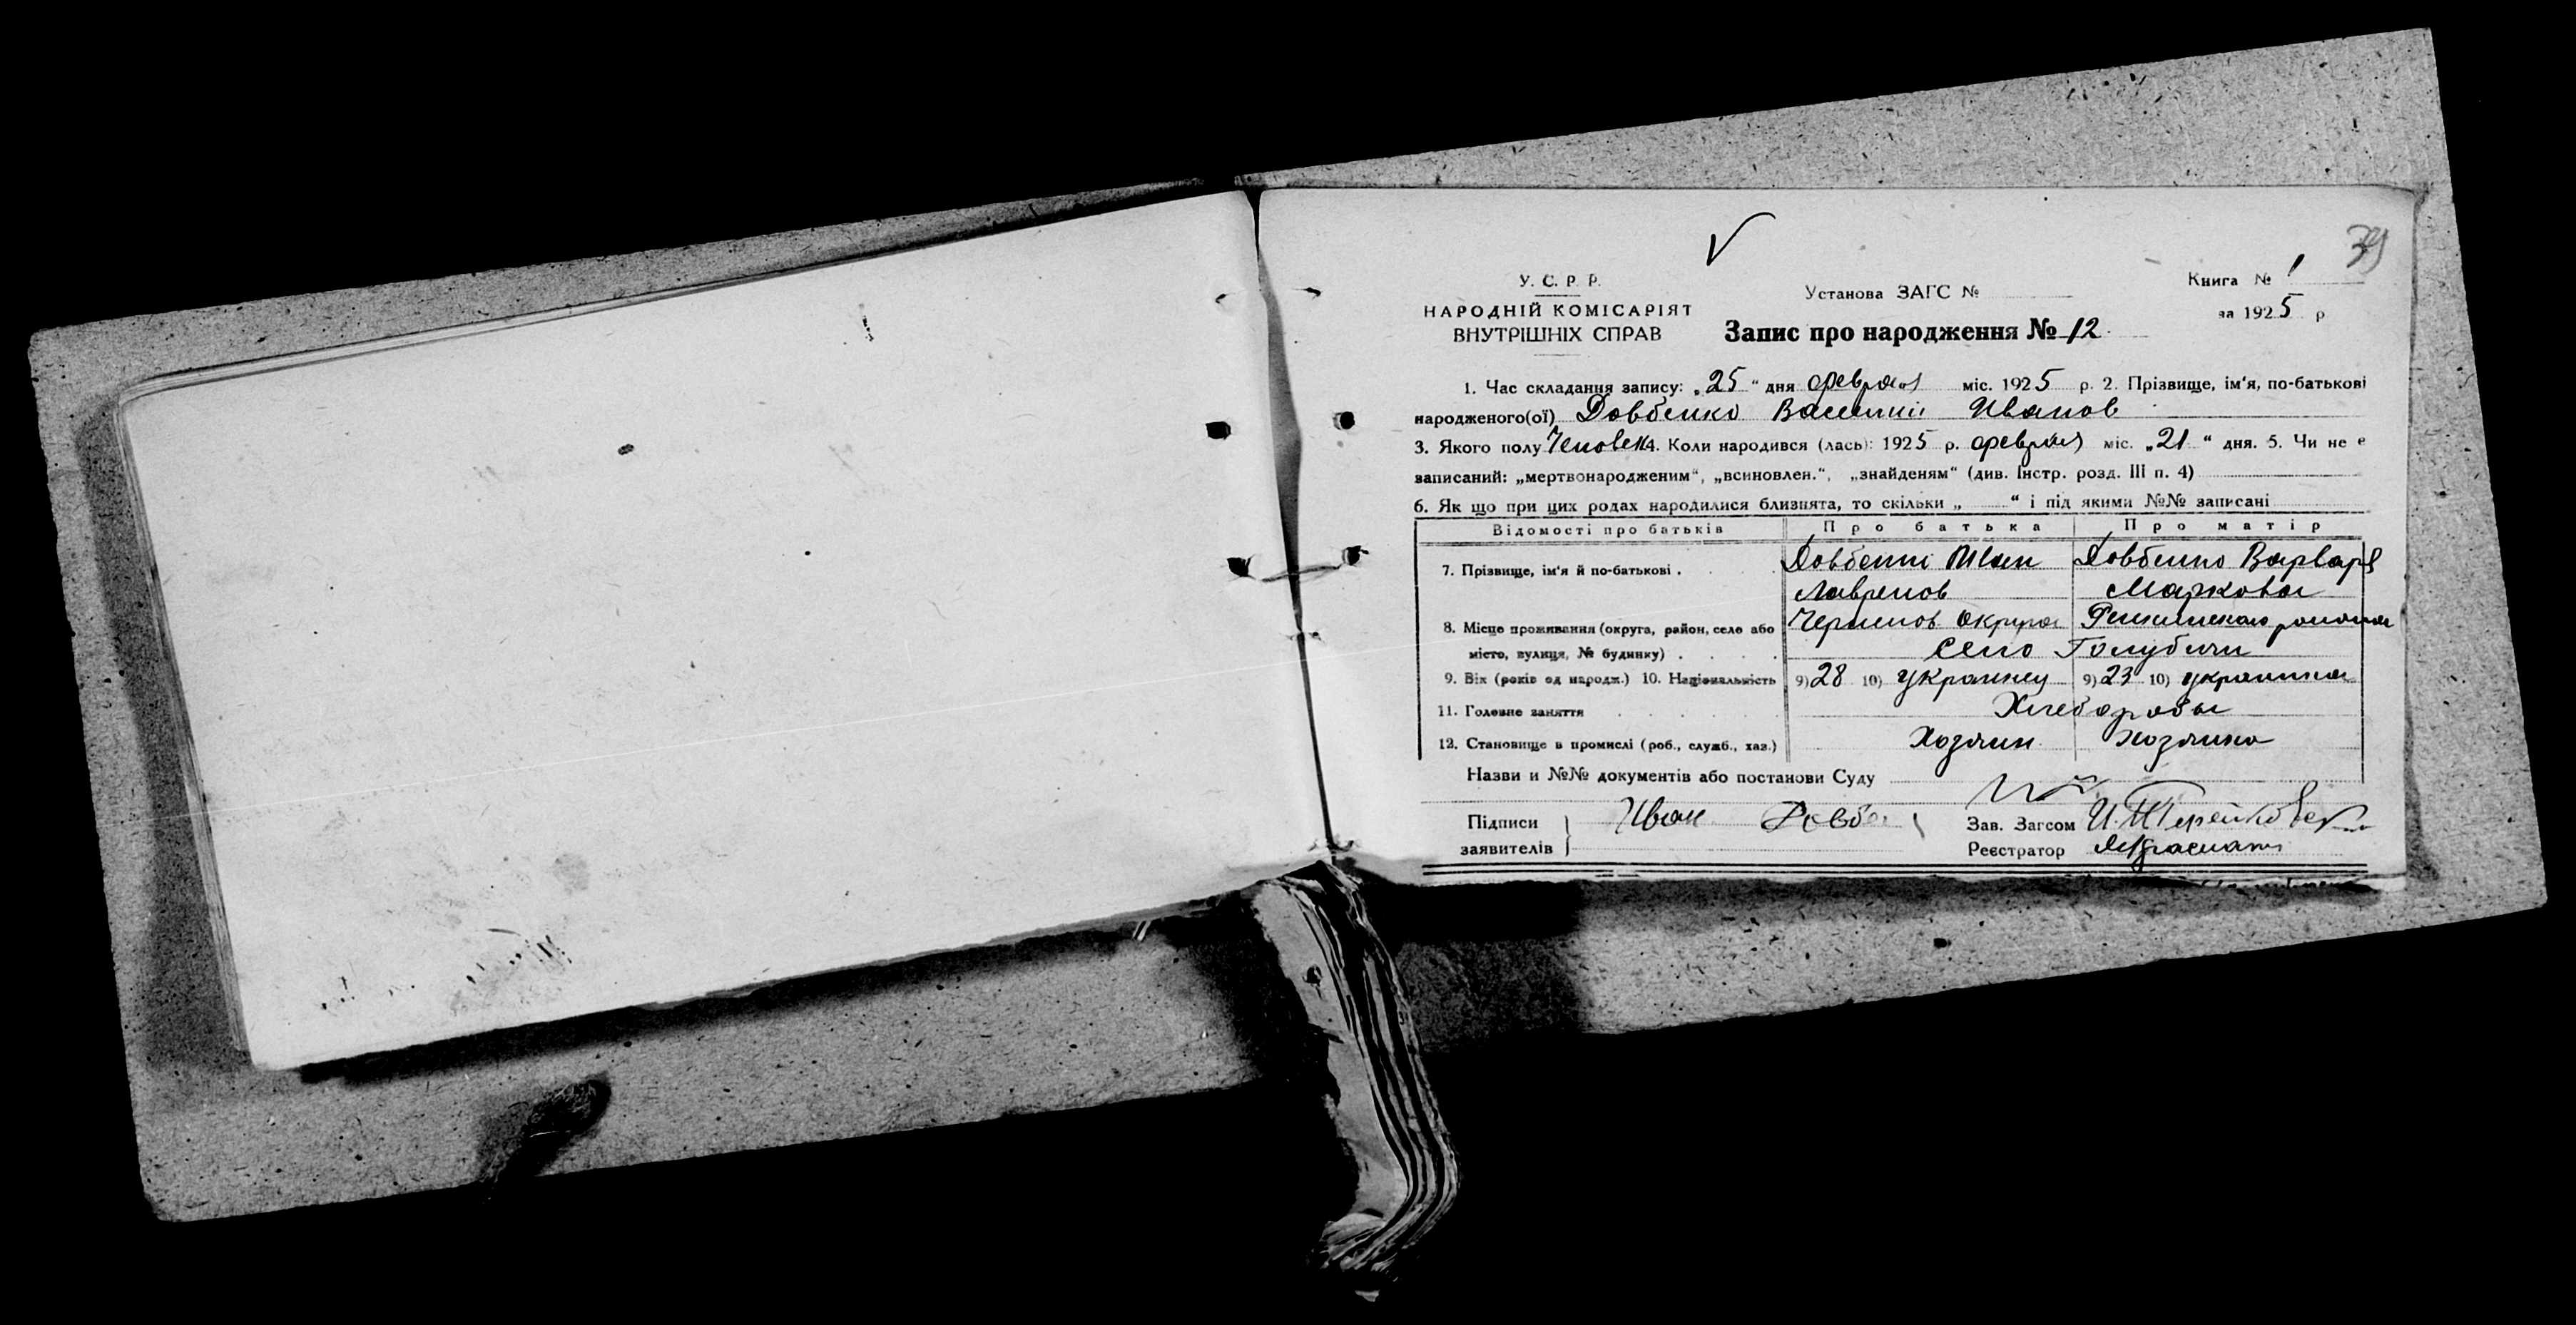 39
У. С. Р. Р.
НАРОДНІЙ КОМІСАРІЯТ
ВНУТРІШНІХ СПРАВ
Установа ЗАГС №
Книга № 1
за 1925 р
Запис про народження № 12
1. Час складання запису: „25“ дня февраля міс. 1925 р. 2. Прізвище, ім'я, по-батькові
народженого(ої) Довбенко Василий Иванов
3. Якого полу Человек 4. Коли народився (лась): 1925 р. февраля міс. „21“ дня. 5. Чи не є
записаний: „мертвонародженим“, „всиновлен.“, „знайденям“ (див. Інстр. розд. III п. 4)
6. Як що при цих родах народилися близнята, то скільки „ “ і під якими №№ записані
Відомості про батьків Про батька Про матір
7. Прізвище, ім'я й по-батькові . Довбенко Иван Довбенко Варвара
Лавренов Маркова
8. Місце проживання (округа, район, село або Чернигов. Округа района
місто, вулиця, № будинку) . село Голубичи
9. Вік (років од народж.) 10. Національність 9) 28 10) украинец 9) 23 10) украинка
11. Головне заняття Хлеборобы
12. Становище в промислі (роб., служб., хаз.) Хозяин хозяйка
Назви и №№ документів або постанови Суду
Підписи Иван Довбе Зав. Загсом И.
заявителів Реєстратор